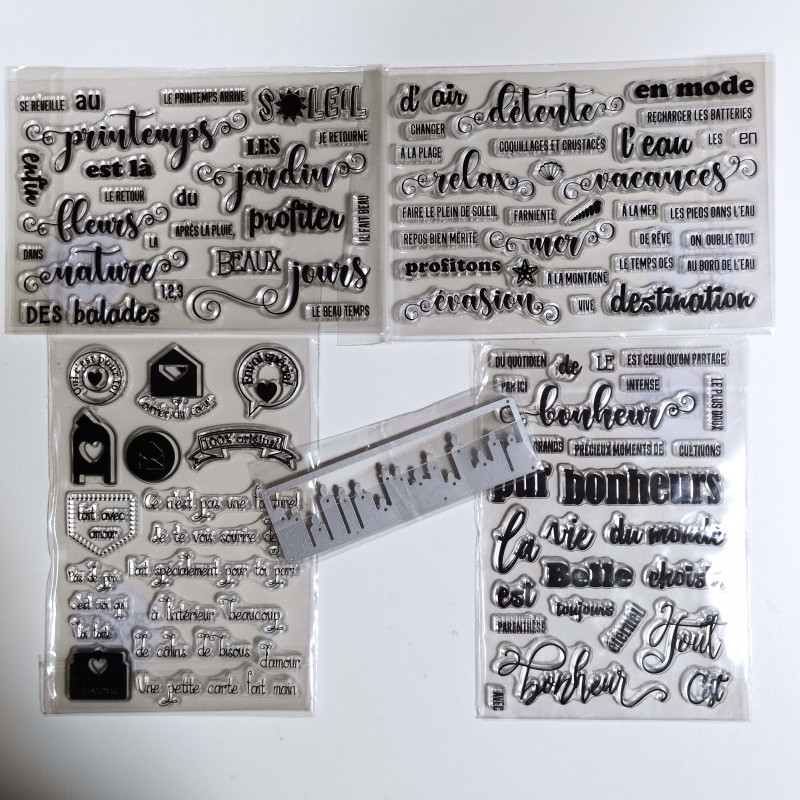 SE RÉVEILLE au LE PRINTEMPS ARRIVE SOLEIL
printemps LES JE RETOURNE
enfin est là jardin
LE RETOUR du
fleurs LA APRÈS LA PLUIE, profiter IL FAIT BEAU
DANS nature BEAUX jours
1,2,3
DES balades LE BEAU TEMPS
d' air détente en mode
CHANGER RECHARGER LES BATTERIES
À LA PLAGE COQUILLAGES ET CRUSTACÉS l'eau LES en
relax vacances
FAIRE LE PLEIN DE SOLEIL FARNIENTE À LA MER LES PIEDS DANS L'EAU
REPOS BIEN MÉRITÉ mer DE RÊVE ON OUBLIE TOUT
profitons À LA MONTAGNE LE TEMPS DES AU BORD DE L'EAU
évasion VIVE destination
Oui c'est pour toi
Courrier du cœur
Envoi spécial
100% original
fait avec
amour
Ce n'est pas une facture!
Je te vois sourire de
Pas de prix
Fait spécialement pour toi par
c'est moi qui
l'ai faite
à l'intérieur beaucoup
de câlins de bisous d'amour
Une petite carte fait main
DU QUOTIDIEN de LE EST CELUI QU'ON PARTAGE
PAR ICI INTENSE
bonheur LE PLUS DOUX
GRANDS PRÉCIEUX MOMENTS DE CULTIVONS
pur bonheurs
la vie du monde
est Belle choisie
toujours
PARENTHÈSE éternel Tout
bonheur C'est
AVEC